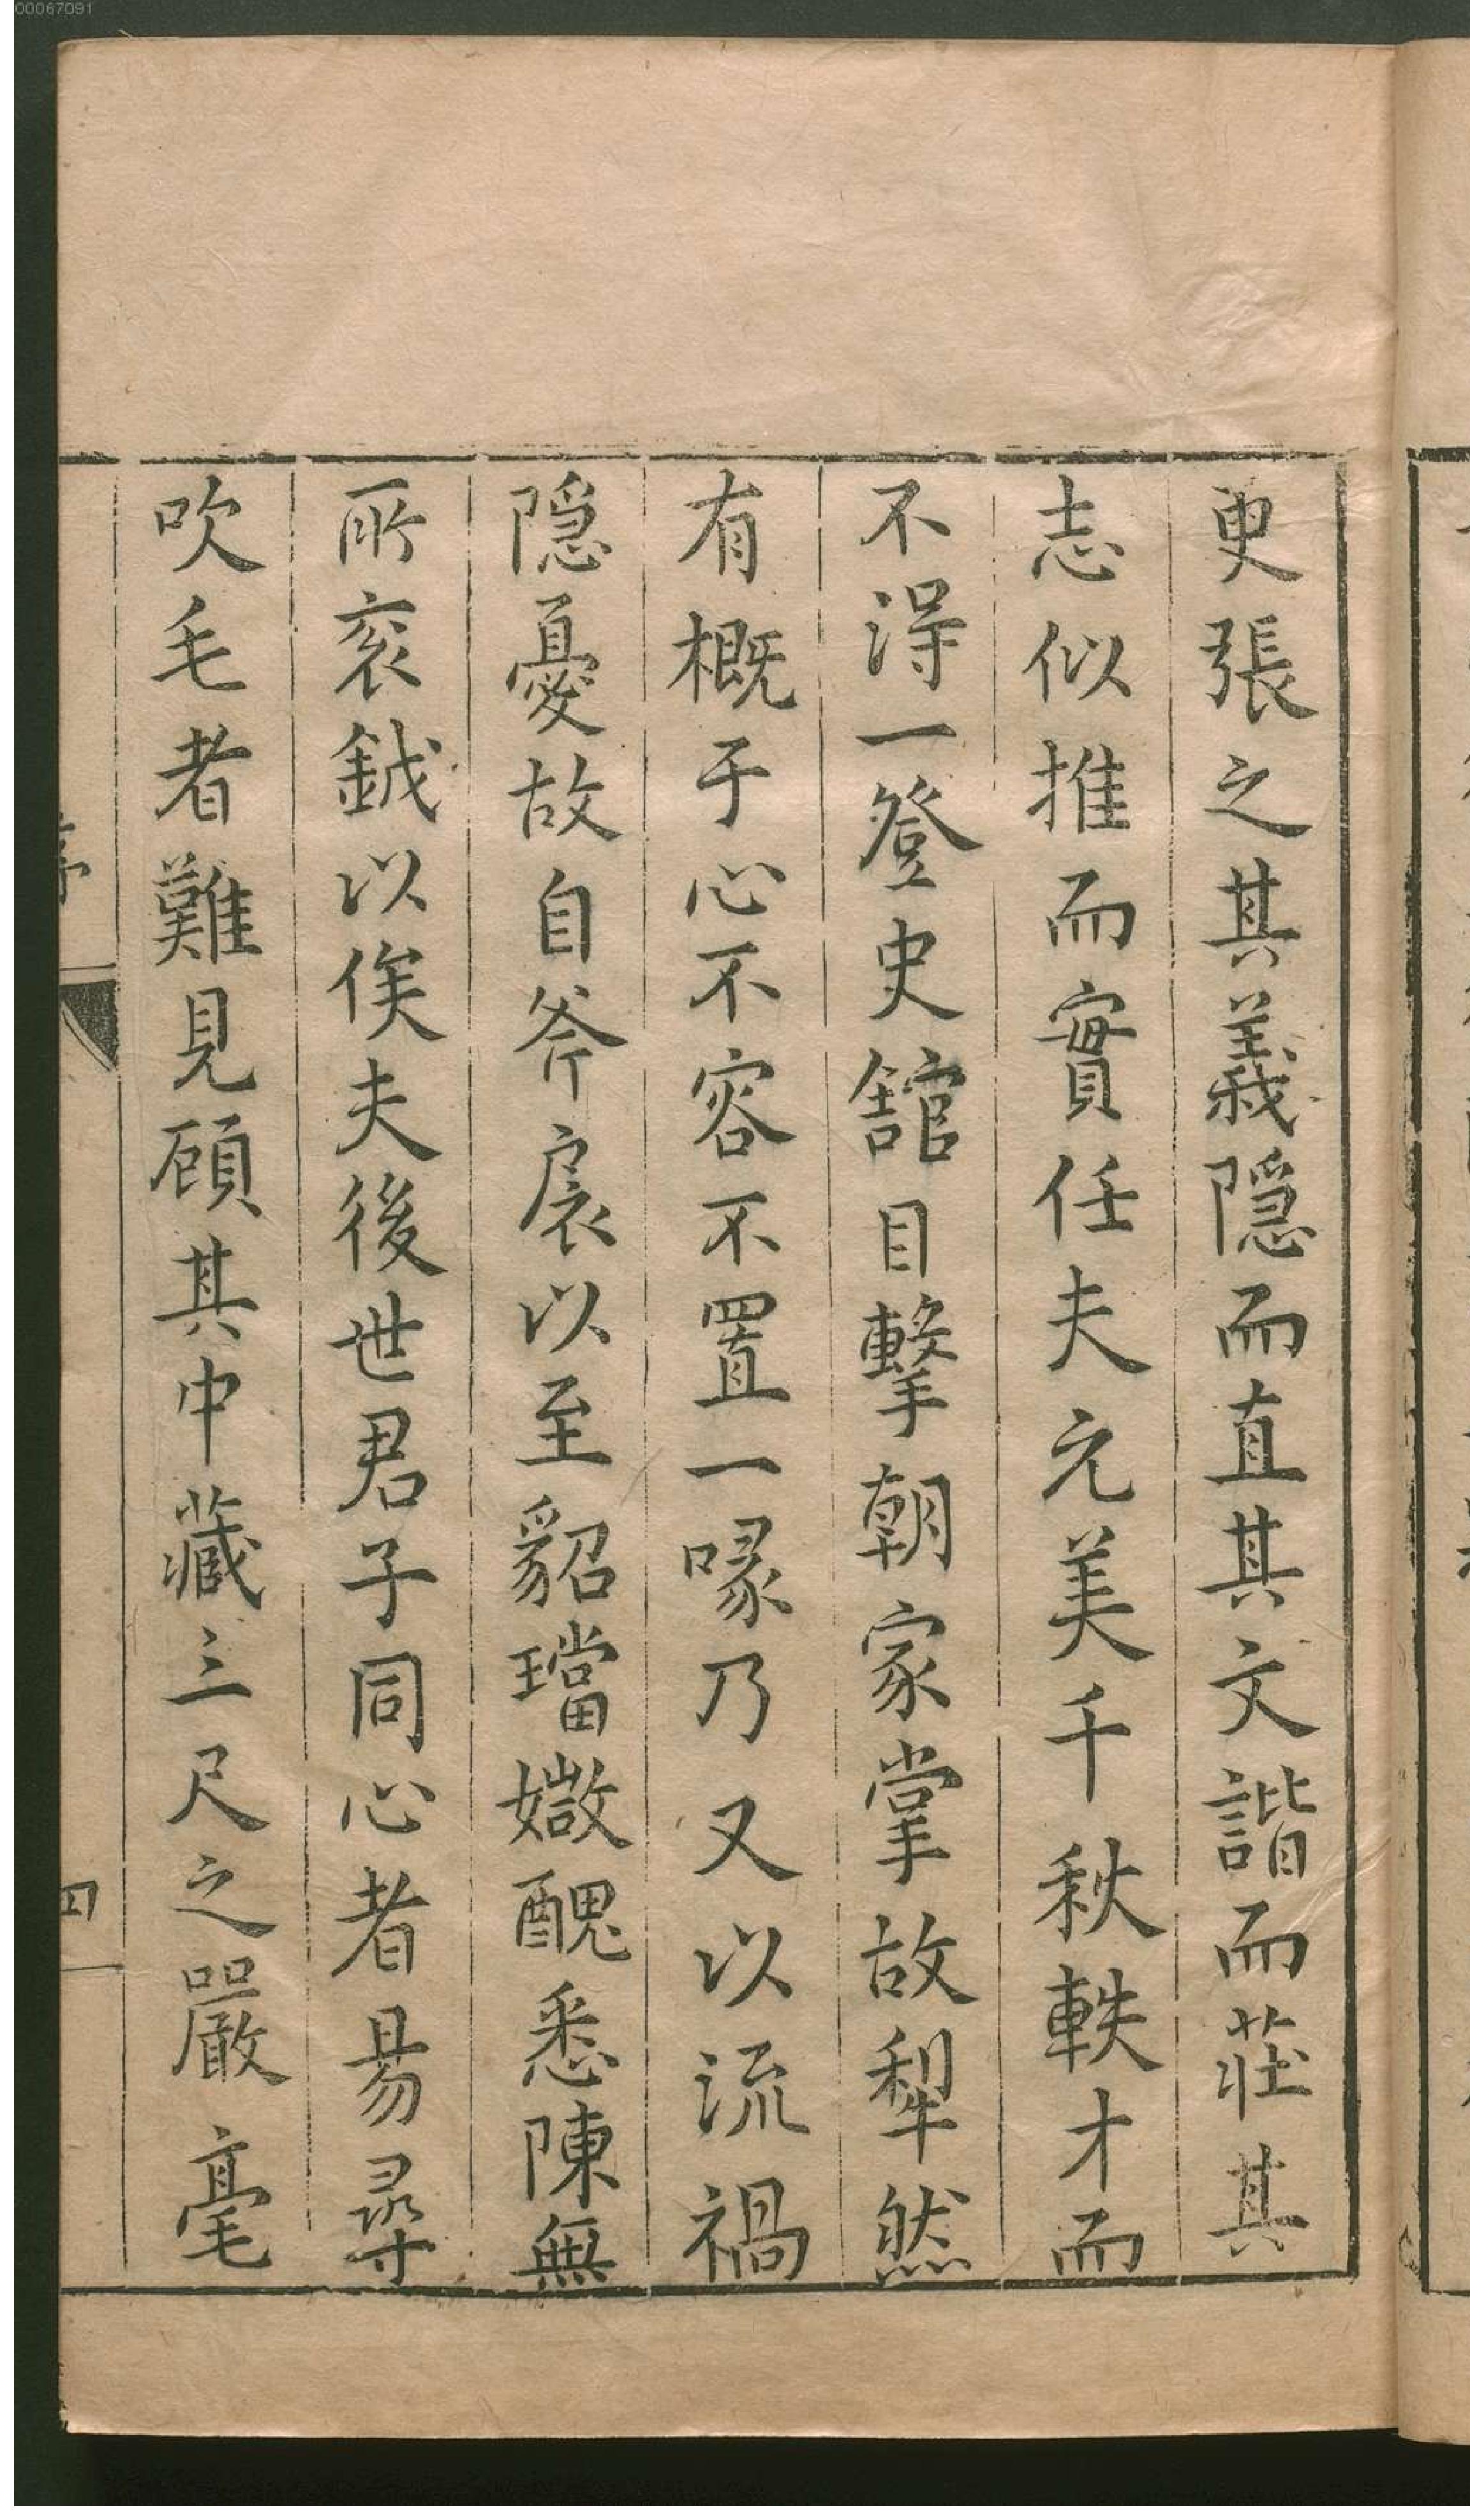 00067091
更張之其義隱而直其文諧而莊其
志似推而實任夫元美千秋軼才而
不淂一登史舘目擊朝家掌故犁然
有概于心不容不置一喙乃又以流禍
隱憂故自斧扆以至貂璫媺醜悉陳無
所衮鉞以俟夫後世君子同心者易尋
吹毛者難見顧其中藏三尺之嚴毫
序
四